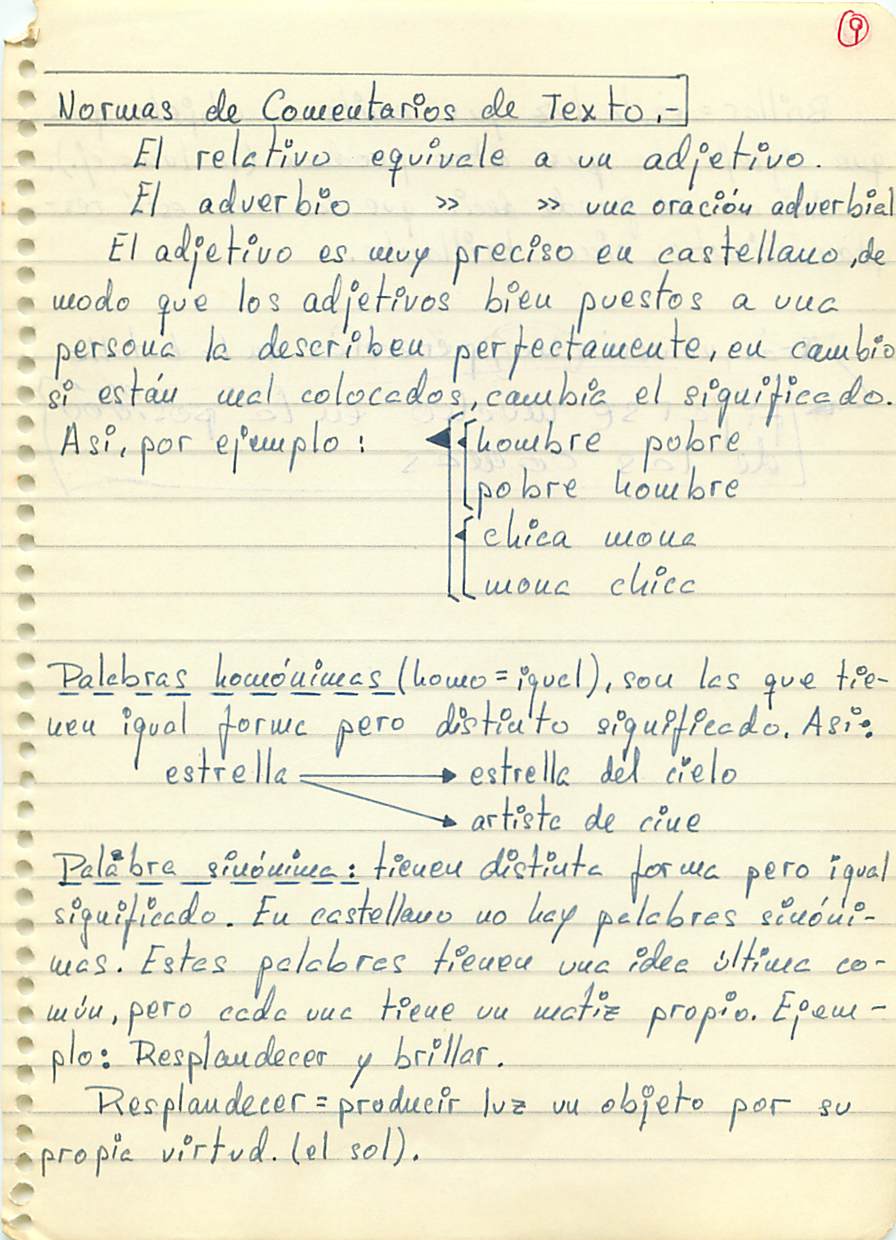 9
Normas de Comentarios de Texto.-
El relativo equivale a un adjetivo.
El adverbio » » una oración adverbial
El adjetivo es muy preciso en castellano, de
modo que los adjetivos bien puestos a una
persona la describen perfectamente, en cambio
si están mal colocados, cambia el significado.
Así, por ejemplo: hombre pobre
pobre hombre
chica mona
mona chica
Palabras homónimas (homo = igual), son las que tie-
nen igual forma pero distinto significado. Así:
estrella estrella del cielo
artista de cine
Palabra sinónima: tienen distinta forma pero igual
significado. En castellano no hay palabras sinóni-
mas. Estas palabras tienen una idea última co-
mún, pero cada una tiene un matiz propio. Ejem-
plo: Resplandecer y brillar.
Resplandecer = producir luz un objeto por su
propia virtud. (el sol).